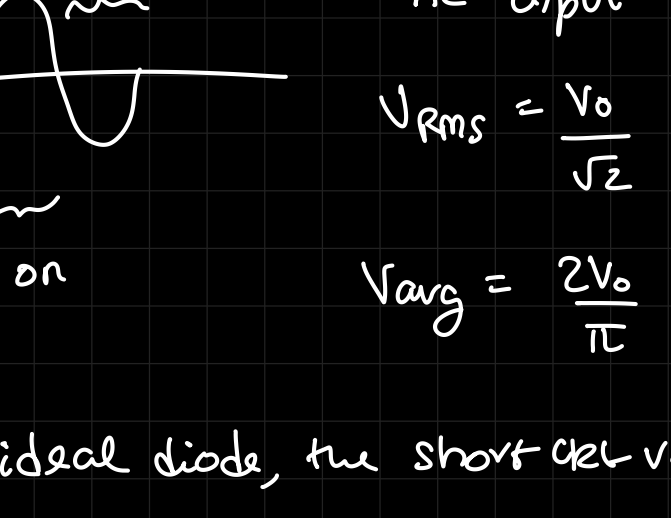 V_RMS = V₀/√2
on
V_avg = 2V₀/π
ideal diode, the short ckt